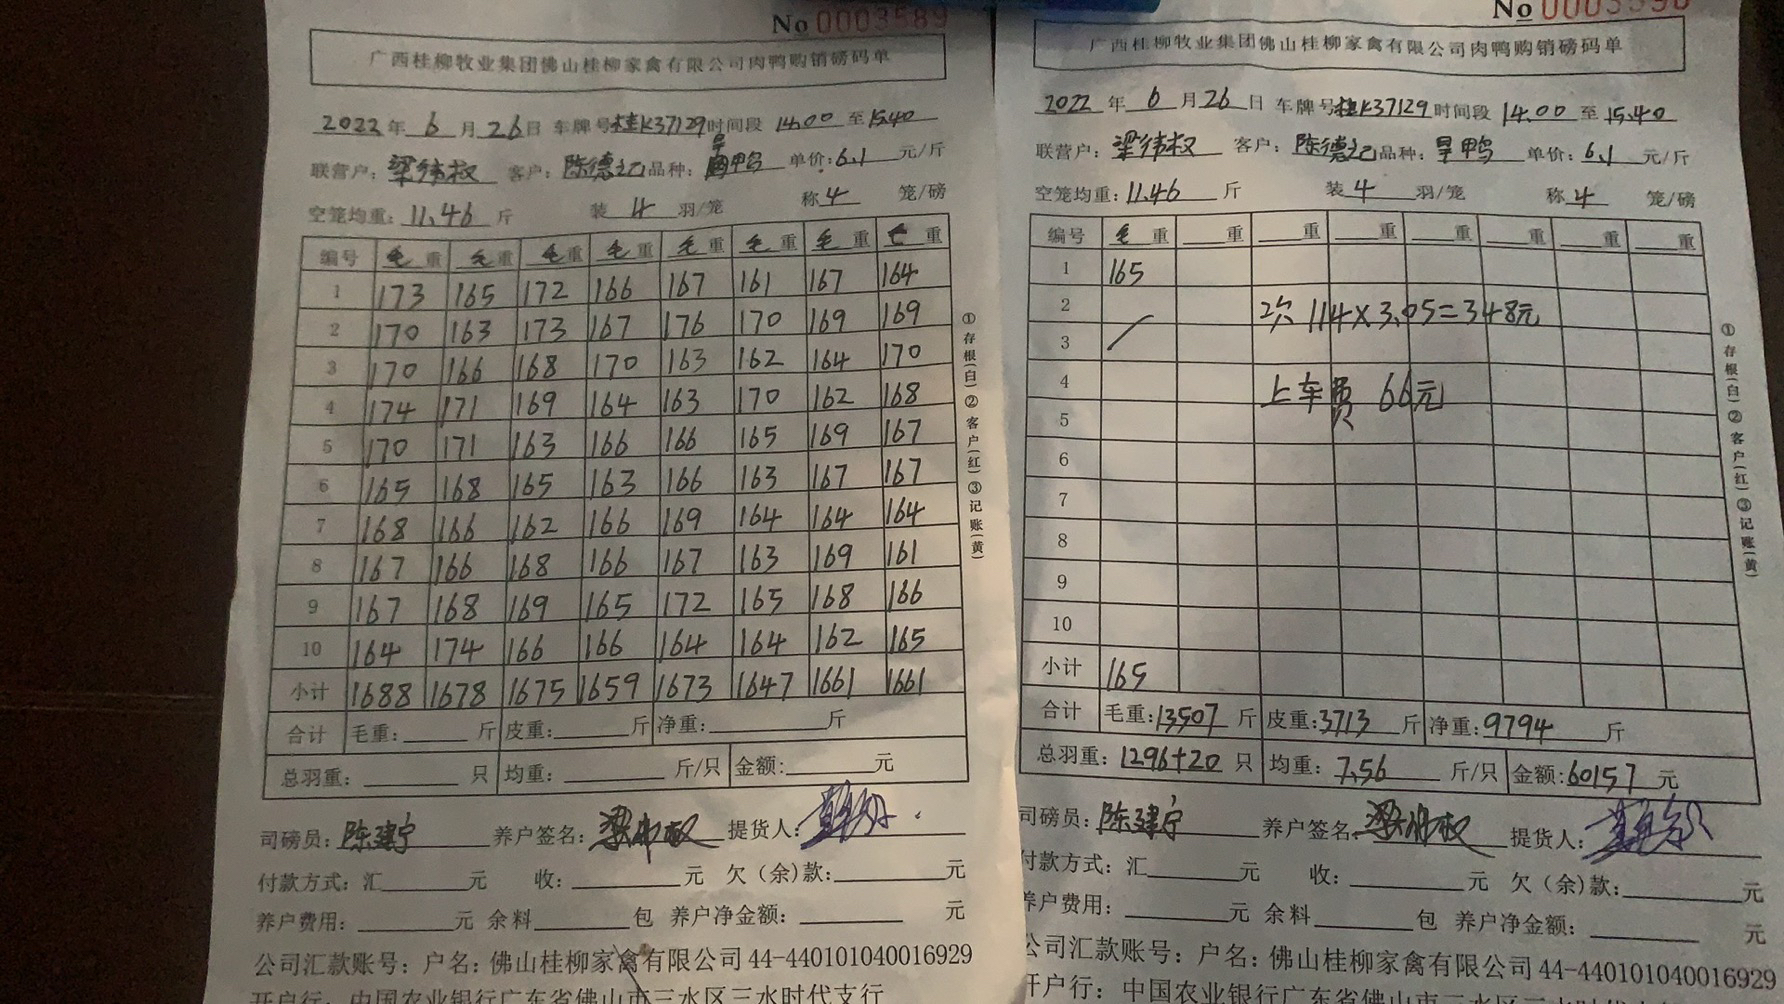 No 0003589
广西桂柳牧业集团佛山桂柳家禽有限公司肉鸭购销磅码单
2022年 6 月 26 日 车牌号桂K37129时间段 14.00 至 15.40
联营户: 梁伟权 客户: 陈德记 品种: 旱鸭 单价: 6.1 元/斤
空笼均重: 11.46 斤 装 4 羽/笼 称 4 笼/磅
编号 毛重 毛重 毛重 毛重 毛重 毛重 毛重 毛重
1 173 165 172 166 167 161 167 164
2 170 163 173 167 176 170 169 169
3 170 166 168 170 163 162 164 170
4 174 171 169 164 163 170 162 168
5 170 171 163 166 166 165 169 167
6 165 168 165 163 166 163 167 167
7 168 166 162 166 169 164 164 164
8 167 166 168 166 167 163 169 161
9 167 168 169 165 172 165 168 166
10 164 174 166 166 164 164 162 165
小计 1688 1678 1675 1659 1673 1647 1661 1661
合计 毛重: 斤 皮重: 斤 净重: 斤
总羽重: 只 均重: 斤/只 金额: 元
司磅员: 陈建宁 养户签名: 梁伟权 提货人:
付款方式: 汇 元 收: 元 欠(余)款: 元
养户费用: 元 余料 包 养户净金额: 元
公司汇款账号: 户名: 佛山桂柳家禽有限公司 44-440101040016929
开户行: 中国农业银行广东省佛山市三水区三水时代支行
①存根(白)②客户(红)③记账(黄)
No 0003590
广西桂柳牧业集团佛山桂柳家禽有限公司肉鸭购销磅码单
2022 年 6 月 26 日 车牌号桂K37129时间段 14.00 至 15.40
联营户: 梁伟权 客户: 陈德记 品种: 旱鸭 单价: 6.1 元/斤
空笼均重: 11.46 斤 装 4 羽/笼 称 4 笼/磅
编号 毛重 重 重 重 重 重 重 重
1 165
2 次 114×3.05=348元
3
4 上车费 66元
5
6
7
8
9
10
小计 165
合计 毛重: 13507 斤 皮重: 3713 斤 净重: 9794 斤
总羽重: 1296+20 只 均重: 7.56 斤/只 金额: 60157 元
司磅员: 陈建宁 养户签名: 梁伟权 提货人:
付款方式: 汇 元 收: 元 欠(余)款: 元
养户费用: 元 余料 包 养户净金额: 元
公司汇款账号: 户名: 佛山桂柳家禽有限公司 44-440101040016929
开户行: 中国农业银行广东省佛山市三水区三水时代支行
①存根(白)②客户(红)③记账(黄)